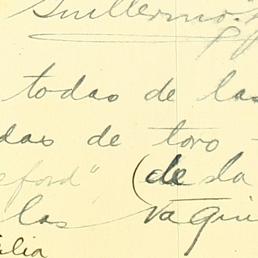 Guillermo"
todas de las
das de toro -
eford", (de la
las vaqui
lia